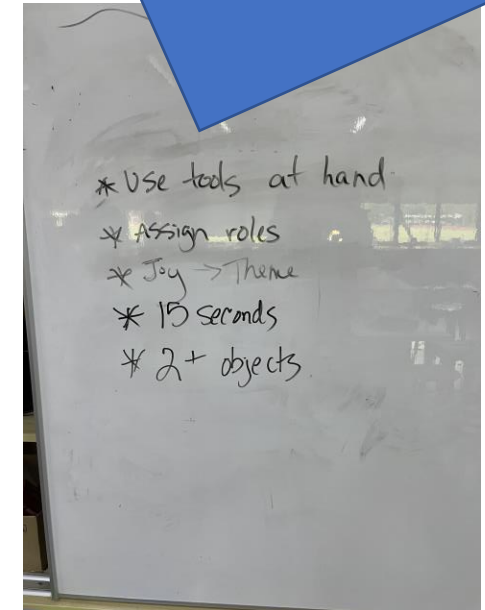 * Use tools at hand
* Assign roles
* Joy → Theme
* 15 seconds
* 2+ objects